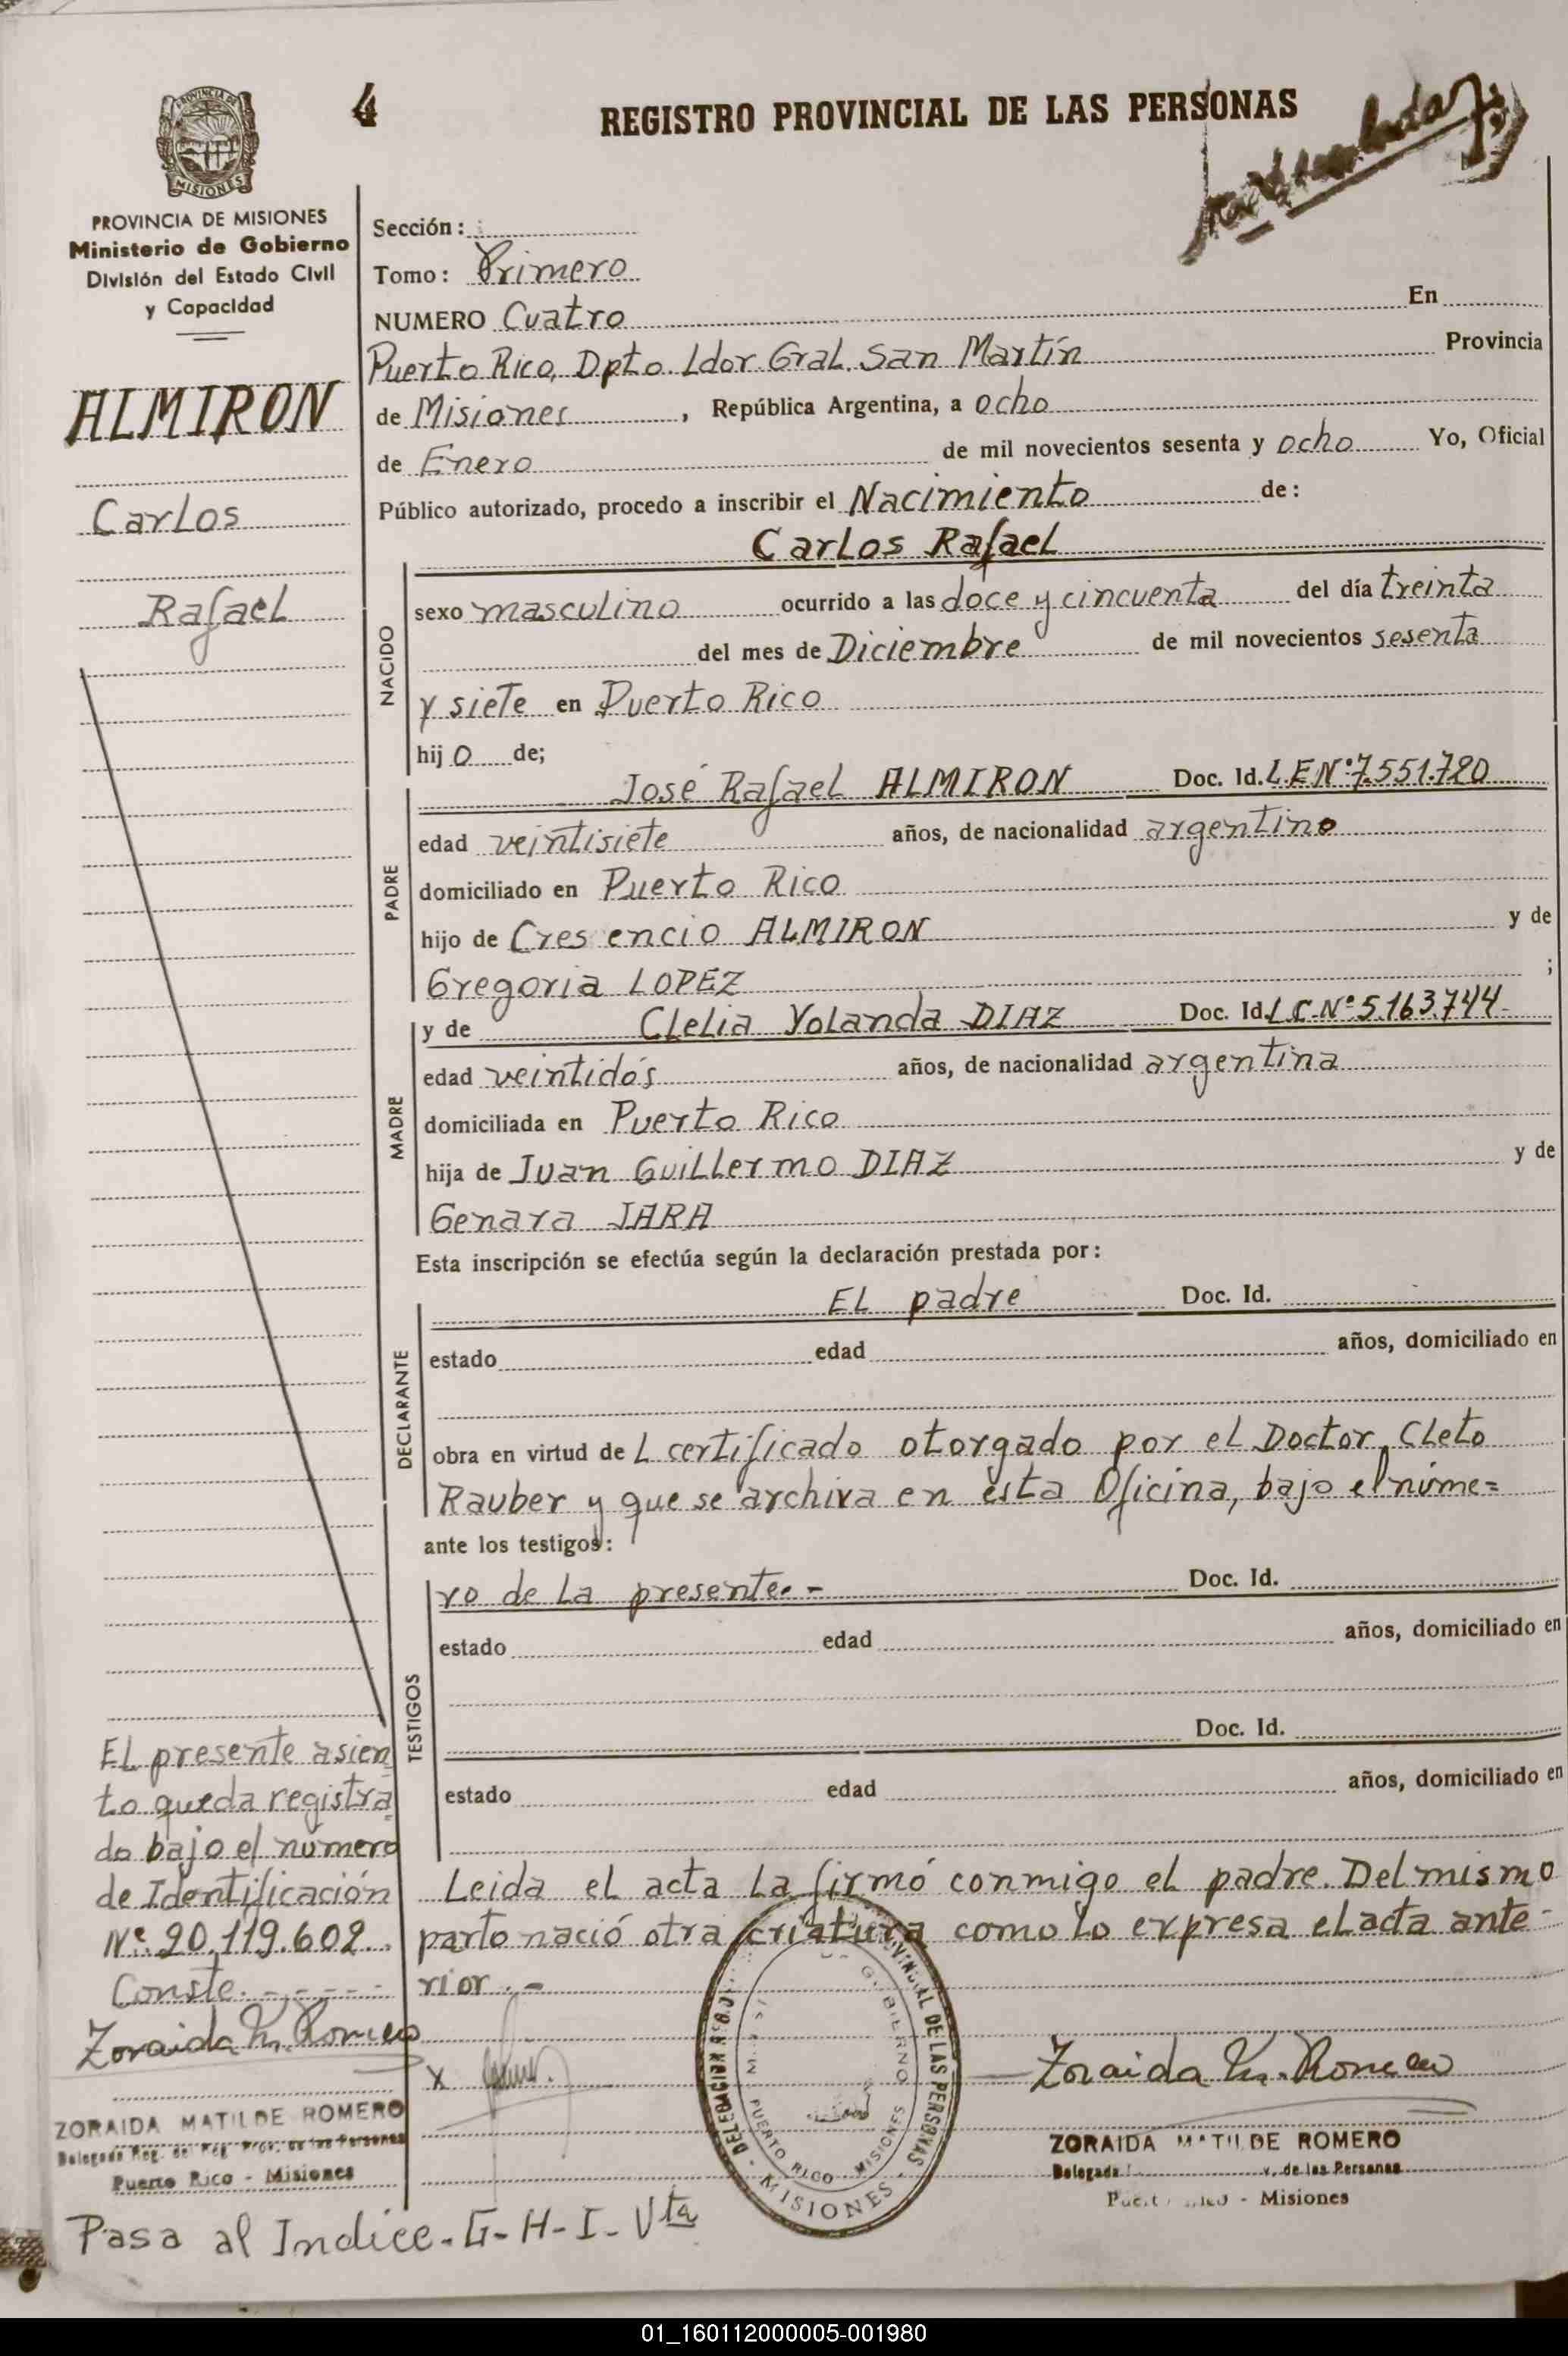 4
REGISTRO PROVINCIAL DE LAS PERSONAS
PROVINCIA DE
MISIONES
PROVINCIA DE MISIONES
Ministerio de Gobierno
División del Estado Civil
y Capacidad
ALMIRON
Carlos
Rafael
Sección:
Tomo: Primero
NUMERO Cuatro En
Puerto Rico, Dpto. Ldor Gral. San Martín Provincia
de Misiones, República Argentina, a ocho
de Enero de mil novecientos sesenta y ocho Yo, Oficial
Público autorizado, procedo a inscribir el Nacimiento de:
Carlos Rafael
NACIDO
sexo masculino ocurrido a las doce y cincuenta del día treinta
del mes de Diciembre de mil novecientos sesenta
y siete en Puerto Rico
hijo de;
PADRE
José Rafael ALMIRON Doc. Id. L.E Nº 7.551.720
edad veintisiete años, de nacionalidad argentino
domiciliado en Puerto Rico
hijo de Cresencio ALMIRON y de
Gregoria LOPEZ ;
MADRE
y de Clelia Yolanda DIAZ Doc. Id. L.C. Nº 5.163.744-
edad veintidós años, de nacionalidad argentina
domiciliada en Puerto Rico
hija de Juan Guillermo DIAZ y de
Genara JARA
Esta inscripción se efectúa según la declaración prestada por:
DECLARANTE
El padre Doc. Id.
estado edad años, domiciliado en
obra en virtud de L certificado otorgado por el Doctor, Cleto
Rauber y que se archiva en ésta Oficina, bajo el núme=
ante los testigos:
TESTIGOS
ro de la presente.- Doc. Id.
estado edad años, domiciliado en
Doc. Id.
estado edad años, domiciliado en
Leida el acta la firmó conmigo el padre. Del mismo
parto nació otra criatura como lo expresa el acta ante-
rior.-
El presente asien
to queda registra
do bajo el número
de Identificación
Nº 20.119.602
Conste.-----
Zoraida M. Romero
ZORAIDA MATILDE ROMERO
Puerto Rico - Misiones
X
DELEGACION PROVINCIAL DE LAS PERSONAS
GOBIERNO
PUERTO RICO MISIONES
- MISIONES -
Zoraida M. Romero
ZORAIDA MATILDE ROMERO
Delegada de las Personas
Puerto Rico - Misiones
Pasa al Indice-G-H-I-Vta
01_160112000005-001980